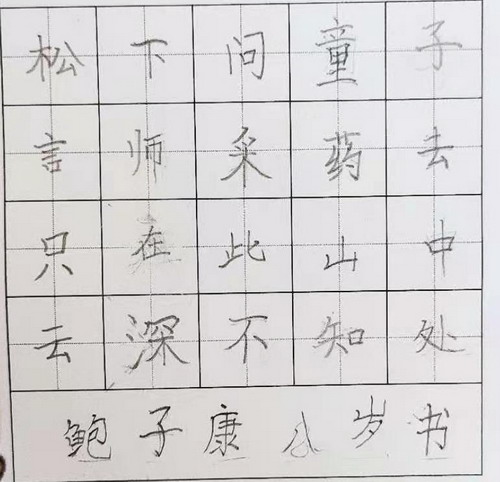 松下问童子
言师采药去
只在此山中
云深不知处
鲍子康八岁书